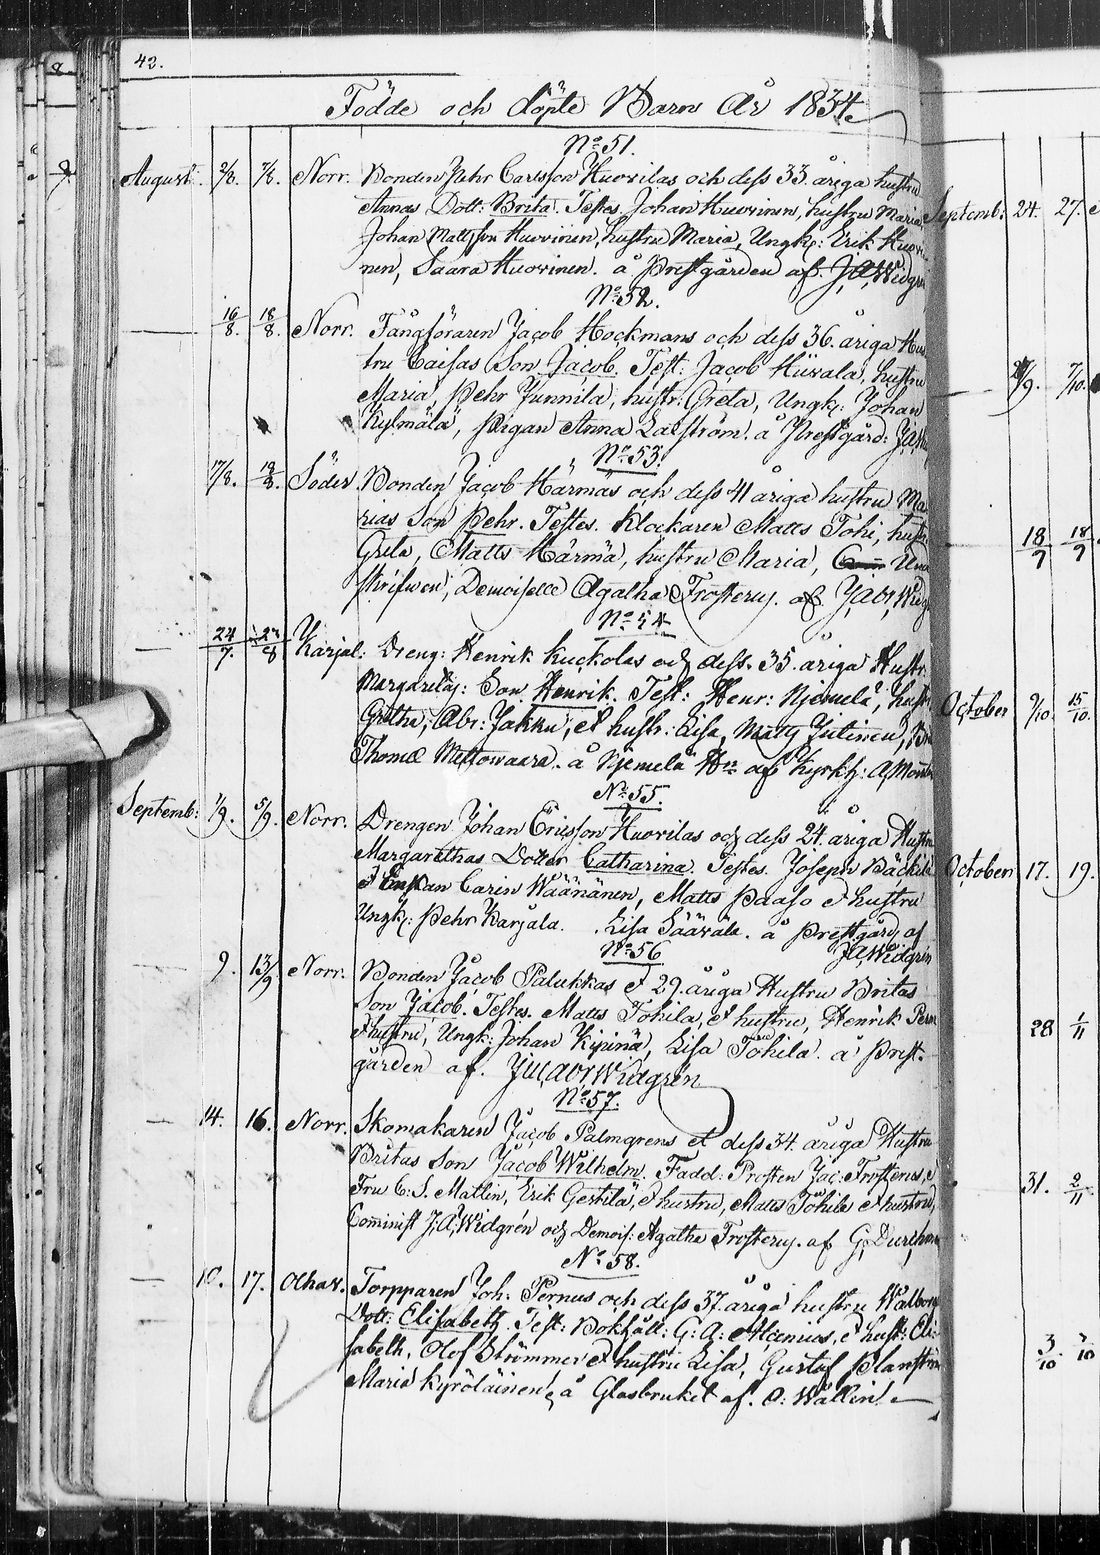 42.
Födde och döpte Barn År 1834
No 51.
August. 2/8. 7/8. Norr. Bonden Pehr Carlsson Huovilas och dess 33. åriga hustru
Annas Dott: Brita. Testes Johan Huovinen, hustru Maria
Johan Mattsson Huovinen, hustru Maria, Ungk: Erik Huovi-
nen, Saara Huovinen. å Prestgården af J A Widgrén
No 52.
— 16/8. 18/8. Norr. Fångföraren Jacob Hockmans och dess 36. åriga Hus
tru Caisas Son Jacob. Test: Jacob Hüvala, hustru
Maria, Pehr Junnila, hustr: Greta, Ungk: Johan
Kylmälä, Pigan Anna Lagström. å Prestgård:
No 53.
17/8. 18/8. Söder Bonden Jacob Härmäs och dess 41 åriga hustru Ma-
rias Son Pehr. Testes. Klockaren Matts Töhi, hustru
Greta, Matts Härmä, hustru Maria, Und
skrifwen, Demoiselle Agatha Frosterus. af
No 54
— 24/7. 8 Karjal: Dreng: Henrik Kuckolas och dess 35. åriga Hustr.
Margaretas: Son Henrik. Test: Henr: Njemelä, hustr
Gretha, Abr: Jakku, et hustr: Lisa, Matts Jutinen,
Thomæ Mettowaara. å Njemelä Hn af Kyrkh:
No 55.
Septemb: 1/9. 5/9. Norr. Drengen Johan Ericsson Huovilas och dess 24. åriga Hustru
Margarethas Dotter Catharina. Testes. Joseph Bäckilä
et Enkan Carin Wäänänen, Matts Paaso et hustru
Ungk: Pehr Karjala. Lisa Säävälä. å Prestgård af
J A Widgrén
No 56
9. 13/9 Norr. Bonden Jacob Palukkas et 29. åriga Hustru Britas
Son Jacob. Testes. Matts Töhilä, et hustru, Henrik
et hustru, Ungk: Johan Kipinä, Lisa Töhilä. å Prest-
gården af. Widgrén
No 57.
— 14. 16. Norr. Skomakaren Jacob Palmgrens et dess 34. åriga Hustru
Britas Son Jacob Wilhelm. Fadd: Prosten Jac: Frosterus, et
Fru C: S. Matlin, Erik Gestilä, et hustru, Matts Töhilä et hustru,
Cominist J. A. Widgrén och Demois: Agatha Frosterus. af G. Durchman
No 58.
— 10. 17. Olhav. Torpparen Joh: Pernus och dess 37. åriga hustru Walborg
Dott: Elisabeth. Test: Bokhåll: G: A: Alcenius, et hust: Eli-
sabeth, Olof Strömmer et hustru Lisa, Gustaf Planström
Maria Kyröläinen, å Glasbruket af. O: Wallin.
Septemb: 24. 27.
/9. 7/10.
18/7 18/7
October 9/10. 15/10.
October 17. 19.
28 1/11
31. 2/11
3/10